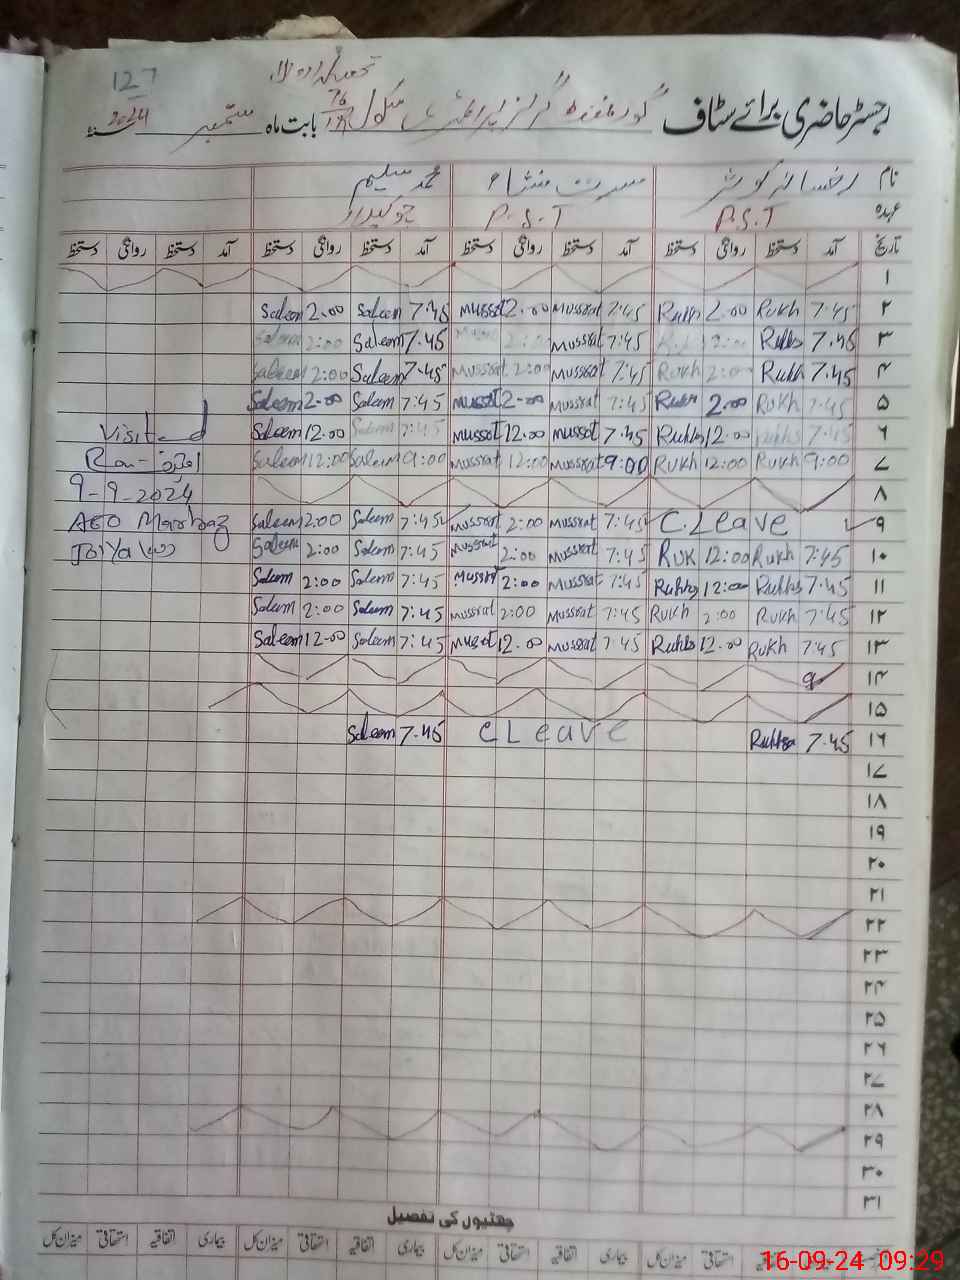 127
رجسٹر حاضری برائے سٹاف گورنمنٹ گرلز پرائمری سکول 76 بابت ماہ ستمبر 2024
نام رخسانہ کوثر مسرت محمد سلیم
عہدہ P.S.T P.S.T چوکیدار
تاریخ آمد دستخط روانگی دستخط آمد دستخط روانگی دستخط آمد دستخط روانگی دستخط آمد دستخط روانگی دستخط
۱
۲ 7.45 Rukh 2.00 Rukh 7:45 Mussrat 2.00 Mussrat 7.45 Saleem 2.00 Saleem
۳ 7.45 Rukhs 2:00 7:45 Mussrat 2:00 7.45 Saleem 2:00 Saleem
۴ 7.45 Rukh 2:00 Rukh 7:45 Mussrat 2:00 Mussrat 7.45 Saleem 2:00 Saleem
۵ 7:45 Rukh 2.00 Rukh 7:45 Mussrat 2.00 Mussrat 7:45 Saleem 2.00 Saleem
۶ 7:45 Rukhs 12.00 Rukhs 7.45 Mussrat 12.00 Mussrat 7:45 Saleem 12.00 Saleem
۷ 9:00 Rukh 12:00 Rukh 9:00 Mussrat 12:00 Mussrat 9:00 Saleem 12:00 Saleem
۸
۹ C.Leave 7:45 Mussrat 2:00 Mussrat 7:45 Saleem 2:00 Saleem
۱۰ 7:45 Rukh 12:00 RUK 7:45 Mussrat 2:00 Mussrat 7:45 Saleem 2:00 Saleem
۱۱ 7:45 Rukhs 12:00 Rukhs 7:45 Mussrat 2:00 Mussrat 7:45 Saleem 2:00 Saleem
۱۲ 7:45 Rukh 2:00 Rukh 7:45 Mussrat 2:00 Mussrat 7:45 Saleem 2:00 Saleem
۱۳ 7:45 Rukh 12.00 Rukhs 7:45 Mussrat 12.00 Mussrat 7:45 Saleem 12.00 Saleem
۱۴
۱۵
۱۶ 7.45 Rukhsa C Leave 7.45 Saleem
۱۷
۱۸
۱۹
۲۰
۲۱
۲۲
۲۳
۲۴
۲۵
۲۶
۲۷
۲۸
۲۹
۳۰
۳۱
Visited
9-9-2024
AEO Markaz
چھٹیوں کی تفصیل
بیماری اتفاقیہ استحقاقی میزان کل بیماری اتفاقیہ استحقاقی میزان کل بیماری اتفاقیہ استحقاقی میزان کل
16-09-24 09:29